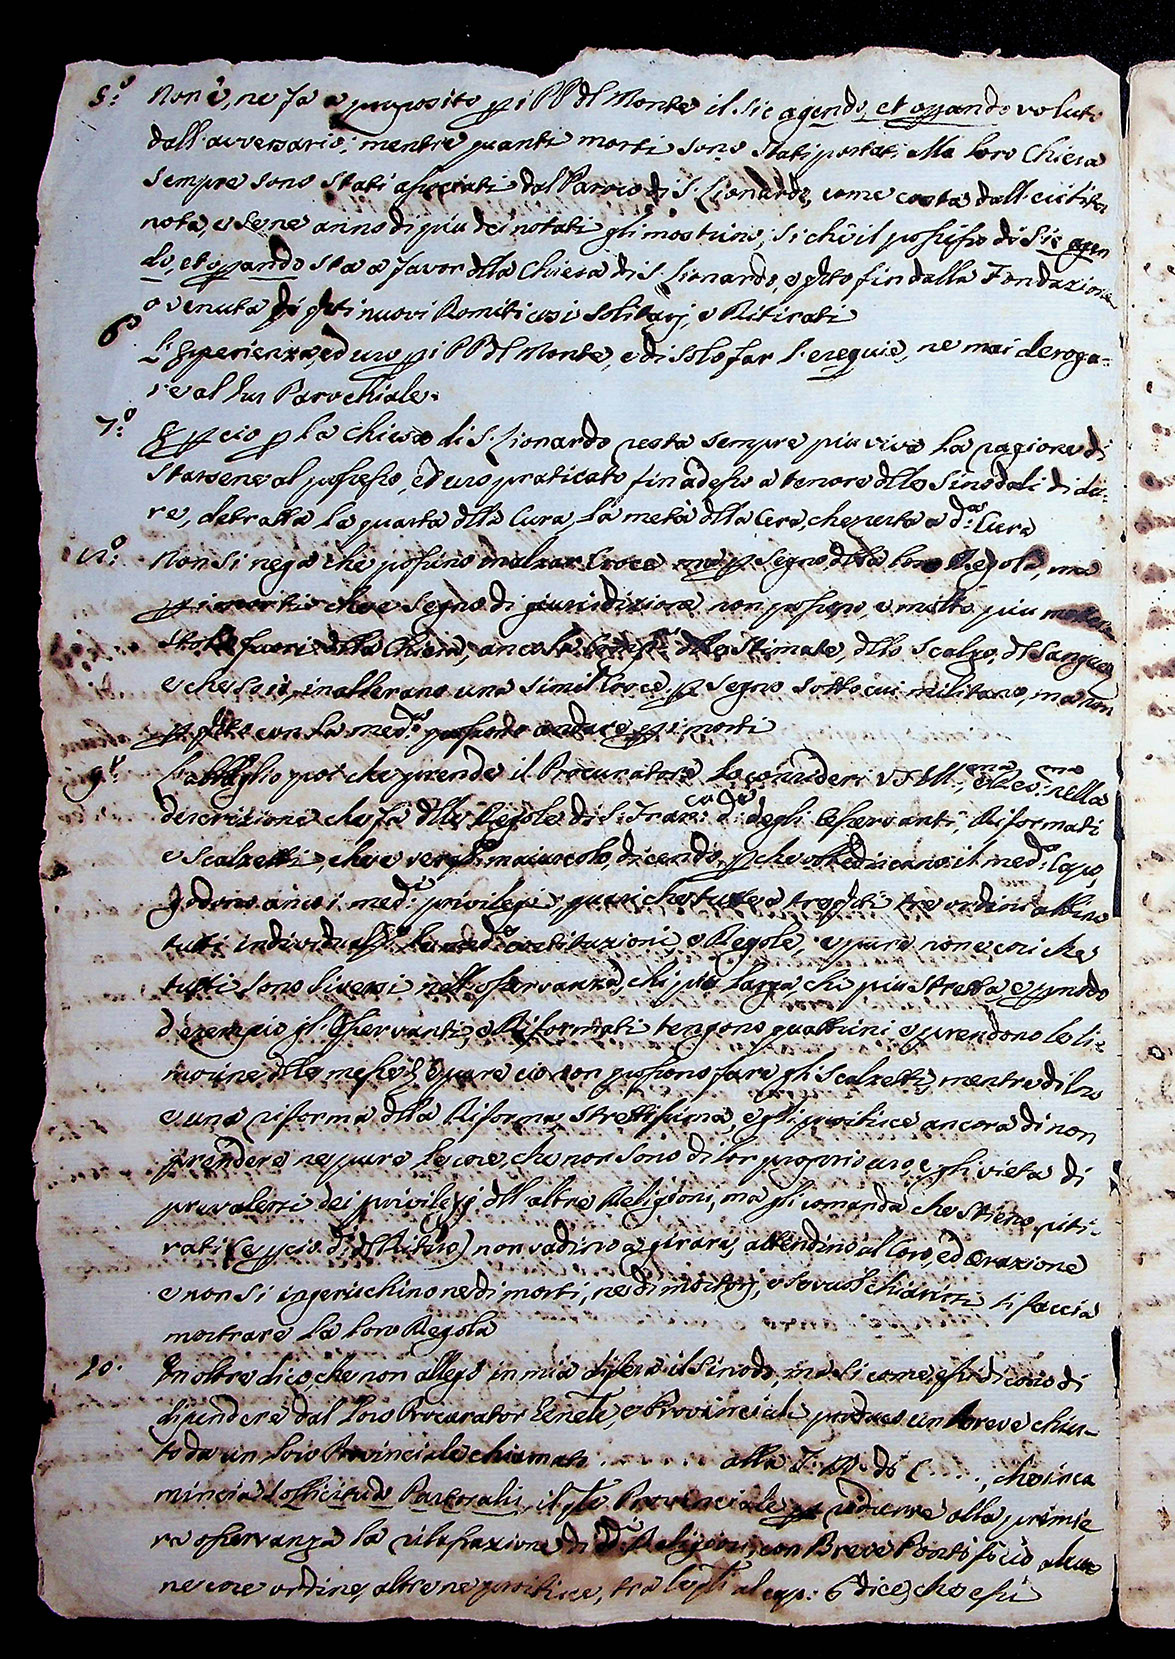 5.º Non è, ne fa a proposito p i PP dl Monte il sic agendo, et opando voluto
dall'avversario, mentre quanti morti sono stati portati alla loro Chiesa
sempre sono stati associati dal Paroco di S. Lionardo, come costa dall'
nota, e se ne anno di più dei notati gli mostrino, si che il possesso di sic agen
do, et opando sta a favor dlla Chiesa di S. Lionardo, e qsto fin dalla Fondazione
o venuta di qsti nuovi Romiti cosi solitarj, e Ritirati
6º L'esperienza, ed uso p i PP dl Monte, e di solo far l'esequie, ne mai deroga=
re al Jus Parochiale.
7.º E p cio p la Chiesa di S. Lionardo resta sempre piu viva la ragione di
starsene al possesso, ed uso praticato fin adesso a tenore dlle Sinodali di
re, detratta la quarta dlla Cura, la metà dlla Cera, che resta a d.ª Cura
Non si nega che possino inalzar Croce p segno dlla loro Regola, ma
p i morti che è segno di giurisdizione non possono, e molto più
fuori dlla Chiesa, ancora le dlle Stimate, dllo Scalzo, dl Sangue
e che so io, inalberano una simil Croce p segno sotto cui militano, ma non
p qsto con la med.ª possono andare p i morti
9.º L'abbaglio poi che prende il Procuratore lo consideri V.S. Ill.ma, e Rev.ma nella
descrizione che fa dlle Regole di S. Fran.co d.ª degli Osservanti, Riformati
e Scalzetti, che è maiuscolo, dicendo, p che il med.º Capo,
godono anco i med.i privilegi, quasi che tutte a tre qsti tre ordini abbino
tutti le med.e costituzioni, e Regole, e pure non è cosi che
tutti sono diversi nell'osservanza, chi più larga, chi più stretta, e p modo
d'esempio gl'Osservanti, e Riformati tengono quattrini e prendono le li=
mosine dlle messe, e pure cio non possono fare gli Scalzetti, mentre di loro
e una riforma dlla Riforma strettissima, e gli proibisce ancora di non
prendere ne pure le cose, che non sono di lor proprio uso, e gli vieta di
prevalersi dei privilegj dll'altre Religioni, ma gli comanda che stieno riti=
rati (e p cio d.i dl Ritiro) non vadino a girare, attendino al Coro, ed Orazione
e non si ingerischino ne di morti, ne di mortorj, e se vuol chiarirsi si faccia
mostrare la loro Regola
10. In oltre dico, che non allego in mia difesa il Sinodo, ma si come essi dicono di
dipendere dal loro Procurator Genle, e Provinciale produco un breve
to da un loro Provinciale chiamato . . . . . . . . alla di C. . . . , che inco
mincia Sollicitudo Pastoralis, il qle Provinciale p ridurre alla primie
ra osservanza la rilassazione di d.ª Religione, con Breve Pontificio alcu
ne cose ordina, altre ne proibisce, tra le qli al cap: 6 dice, che essi